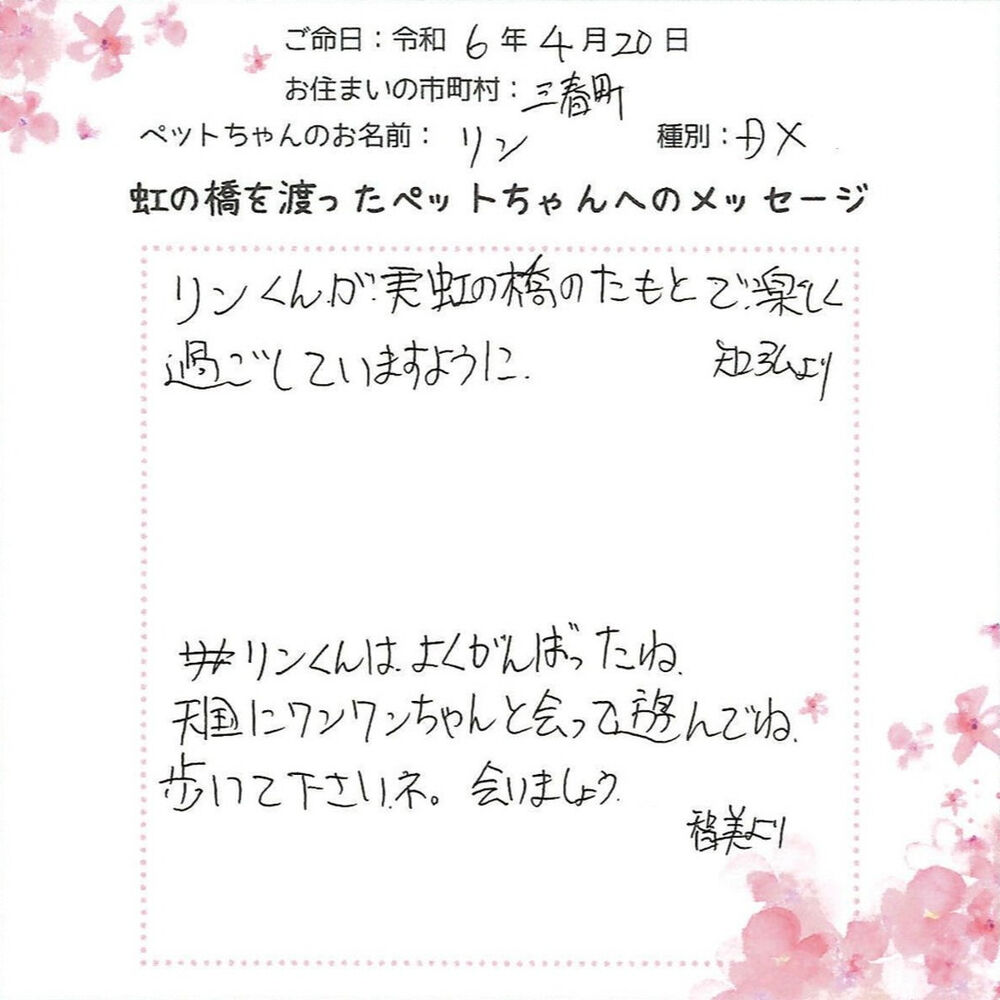 ご命日：令和 6 年 4 月 20 日
お住まいの市町村：三春町
ペットちゃんのお名前： リン 種別：
虹の橋を渡ったペットちゃんへのメッセージ
リンくんが 虹の橋のたもとで楽しく
過ごしていますように. より
リンくんは.よくがんばったね.
天国にワンワンちゃんと会って遊んでね.
歩いて下さいネ。会いましょう.
美より